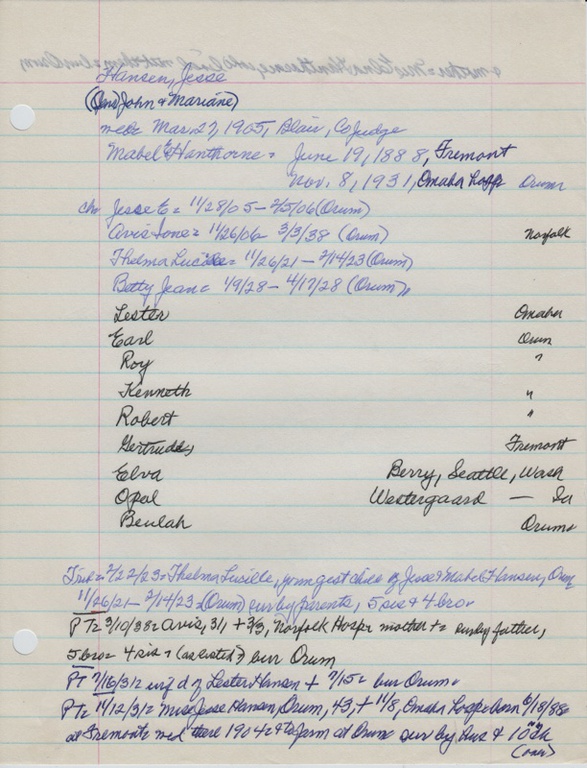 Hansen, Jesse
(Par John & Mariane)
wed: Mar. 27, 1905, Blair, Co Judge
Mabel E Hanthorne = June 19, 1888, Fremont
Nov. 8, 1931, Omaha Hosp Orum
ch= Jesse E = 11/28/05 - 2/5/06 (Orum)
Avis Ione = 11/26/06 - 3/3/38 (Orum) Norfolk
Thelma Lucille = 11/26/21 - 2/14/23 (Orum)
Betty Jean = 1/9/28 - 4/17/28 (Orum)
Lester Omaha
Earl Orum
Roy "
Kenneth "
Robert "
Gertrude Fremont
Elva Berry, Seattle, Wash
Opal Westergaard — Ia
Beulah Orum
Trib = 2/22/23 = Thelma Lucille, youngest child of Jesse & Mabel Hansen, Orum
11/26/21 - 2/14/23 = (Orum) sur by parents, 5 sis & 4 bro.
PT = 3/10/38 = Avis, 31 + 3/3, Norfolk Hosp = mother + = sur by father,
5 bro = 4 sis = (as listed) bur Orum
PT 7/16/31 = inf d of Lester Hansen + 7/15 = bur Orum
PT = 11/12/31 = Mrs Jesse Hansen, Orum, 43, + 11/8, Omaha Hosp = born 6/18/88
at Fremont = wed there 1904 = to farm at Orum sur by hus & 10 ch
(over)